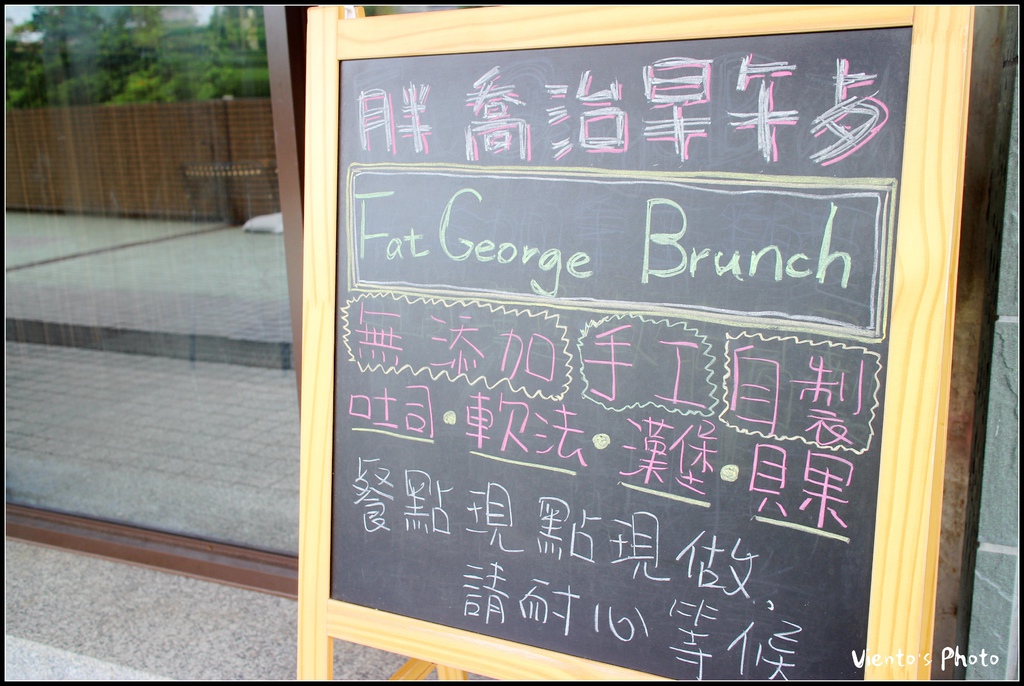 胖喬治早午歺
Fat George Brunch
無添加 手工 自製
吐司·軟法·漢堡·貝果
餐點現點現做,
請耐心等候
Viento's Photo